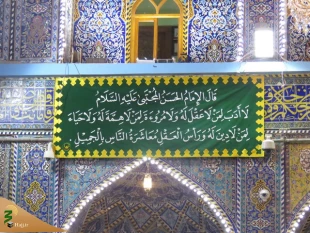 قَالَ الإِمَامُ الحَسَنُ المُجْتَبَى عَلَيْهِ السَّلَامُ
لَا أَدَبَ لِمَنْ لَا عَقْلَ لَهُ وَلَا مُرُوءَةَ لِمَنْ لَا هِمَّةَ لَهُ وَلَا حَيَاءَ
لِمَنْ لَا دِينَ لَهُ وَرَأْسُ العَقْلِ مُعَاشَرَةُ النَّاسِ بِالْجَمِيلِ
Hajij